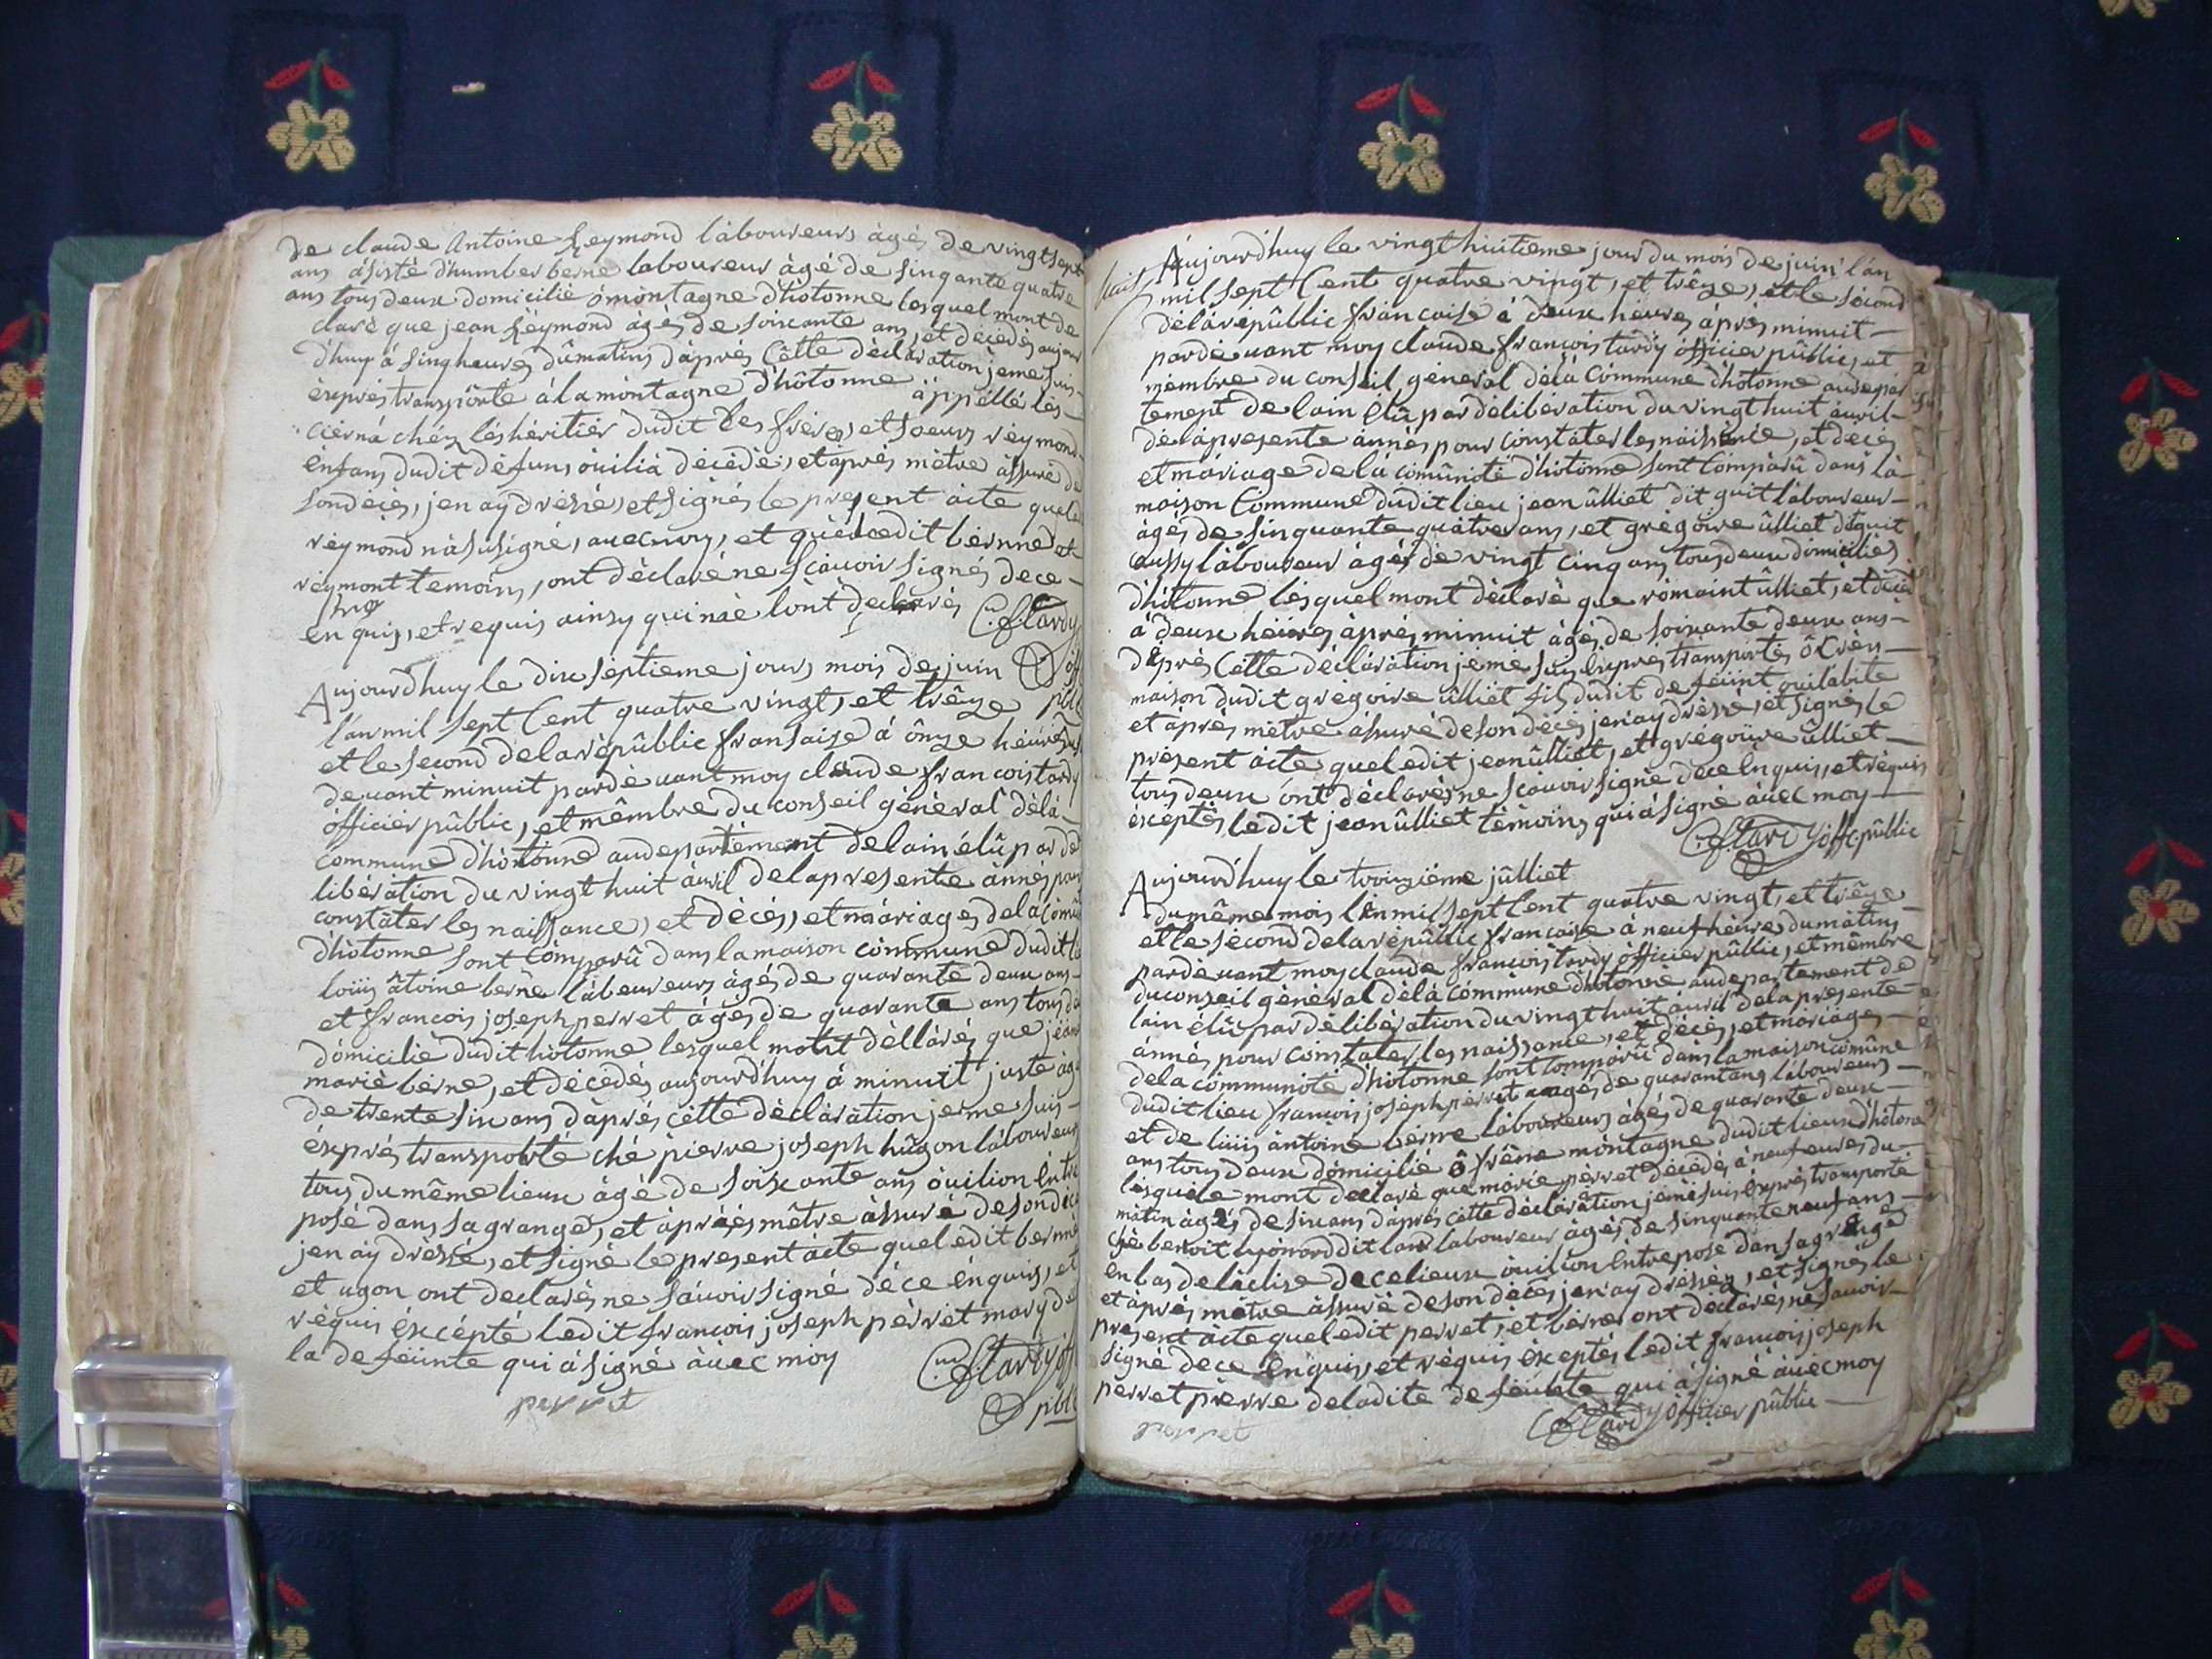 De claude Antoine Reymond làboureurs àgés de vingt sept
ans àsisté d'humber berne laboureur àgé de singante quatre
ans tous deux domicilié ò montagne d'hotonne lesquel mont de
claré que jean Reymond àgés de soixante ans, et décédés aujour
d'huy à sing heures du matins d'àprés Cètte déclaration je me suis
èxprés transporté à la montagne d'hôtonne àppéllé les
cierná chéz lés héritiér dudit Les fréres, et soeurs réymond
enfans dudit défuns òuilia décédé, et aprés mètre àssuré de
son décés, jen aÿ dréssé, et signés le present àcte que le
réymond nà su signé, avec moy, et què ledit bérnne et
réymont temoins, ont déclaré ne sçauoir signés de ce
en quis, et requis ainsy qui nàe lont declarés C. f. tardy
off
pblc
Aujourd'huy le dix séptieme jours mois de juin
l'an mil sept Cent quatre vingt, et trêze
et le second de la républic fransaize à ônze héures
devant minuit pardevant moy claude francois tardy
officier public, et mêmbre du conseil général dèla
commune d'hotonne au departément de lain élû par dé
libération du vingt huit àvril de la presente ànnés pour
constàter les naissance, et décés, et màriages de la còmu
d'hotonne sont Compàrû dans la maison commune dudit li
loüis àtoine bérne làbeureurs àgés de quarante deux ans
et francois joseph perret àgés de quarante ans tous de
dòmicilié dudit hòtonne lesquel mont déllàrés que jéan
marié bérne, et décedés aujourd'huy à minuit juste àgé
de trente six ans d'àprés cètte déclàration je me suis
éxprés transporté ché piérre joseph hûgon làboureur
tous du mème lieux àgé de soixante ans òuilion èntre
posé dans sa grange, et àpràés mêtre àssuré de son dec
jen ày dréssé, et signé le present àcte que ledit berne
et ugon ont declarés ne sàuoir signé déce énquis, et
réquis éxcépté ledit francois joseph pérret mary de
la deféunte qui à signé àùec moy C. f. tardy off
perret pblc
huit
Aujourd'huy le vingt huitieme jour du mois de juin l'an
mil sept Cent quatre vingt, et trêze, et le sècond
de là républic francaise à deux héures àprés minuit
pardevant moy claude francois tardÿ òfficier pûblic, et
mémbre du conseil général dèlà Commune d'hotonne au depar
tement de lain élû par délibération du vingt huit àvril
de là presente ànnés pour constàter les naissance, et décés
et màriage de la comûnoté d'hotonne sont Compàrû dans là
maison Commune dudit lieu jean ûlliet dit guit làboureur
àgés de sinquante quàtre ans, et grégoire ûlliet dit guit
aussy làboureur àgés de vingt cinq ans tous deux domiciliés
d'hotonne lésquel mont déclaré que romaint ûlliet, et décéd
à deux héüres àprés minuit àgés de soixante deux ans
d'àprés Cètte déclàration je me suis éxprés transportés ò
maison dudit grégoire ûlliét fils dudit deféünt òuilabite
et àprés mêtre àssuré de son décés jen ay dréssé, et signés le
présent àcte que ledit jean ûlliet, et grégoüire ûlliet
tous deux ònt déclarés ne sçàuoir signé dece énquis, et réquis
éxceptés ledit jean ûlliet témoins qui à signé àùec moy
C. f. tardy off. pûblic
Aujourd'huy le troizième jûlliet
du même mois lèn mil sept Cent quatre vingt, et trêze
et le sècond de la républic francaise à neuf héures du màtins
pardèvant moy claude francois tardy òfficier pûblic, et mêmbre
du conseil général dèlà còmmune d'hotonne au departement de
lain élû par délibération du vingt huit àvril de la presente
ànnés pour constater les naissance, et décés, et màriàges
de la communoté d'hotonne sont compàrû dans la maison comûne
dudit lieu francois joséph perret àgés de quarant ans laboureurs
et de lüüis àntoine bérne làboureurs àgés de quarante deux
ans tous deux dòmicilié ô frêne mòntagne dudit lieux d'hôtonne
lésquéle mont declaré que marie pérret décédés à neuf eures du
màtin àgés de six ans d'àprés cètte déclàration je me suis éxprés transporté
ché benoit laboureur àgés de sinquante neuf ans
en bas de lèclise de ce lieux òuilion entreposé dan sa grange
et àprés mêtre àssuré de son décés jen ay dréssés, et signés le
present àcte que ledit perret, et bérne ont déclarés ne sàuoir
signé dece enquis, et réquis éxceptés ledit francois joseph
perret pierre de ladite deféunte qui à signé àùec moy
perret C. f. tardy officier pûblic